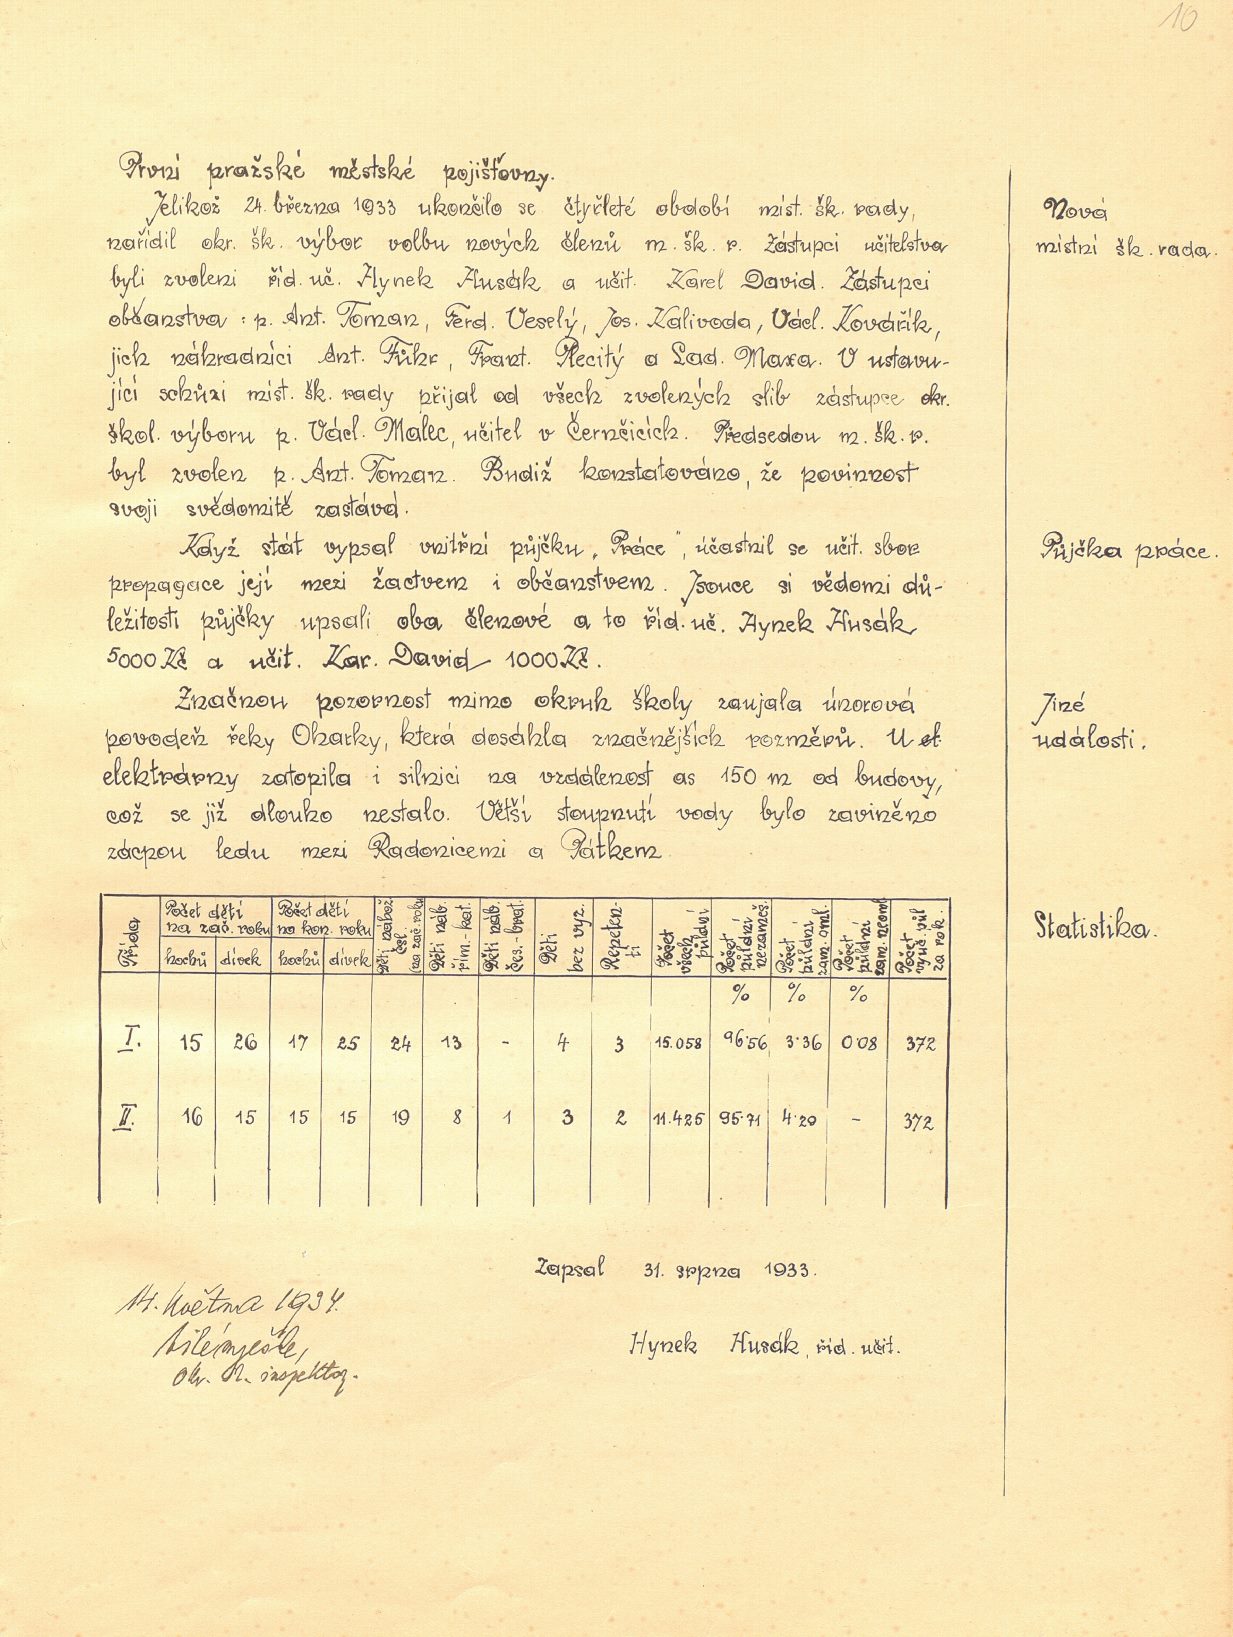 10
První pražské městské pojišťovny.
Jelikož 24. března 1933 ukončilo se čtyřleté období míst. šk. rady,
Nová
nařídil okr. šk. výbor volbu nových členů m. šk. r. Zástupci učitelstva
místní šk. rada.
byli zvoleni říd. uč. Hynek Husák a učit. Karel David. Zástupci
občanstva : p. Ant. Toman, Ferd. Veselý, Jos. Kalivoda, Václ. Kovářík,
jich náhradníci Ant. Führ, Frant. Recitý a Lad. Maxa. V ustavu-
jící schůzi míst. šk. rady přijal od všech zvolených slib zástupce okr.
škol. výboru p. Václ. Malec, učitel v Černčicích. Předsedou m. šk. r.
byl zvolen p. Ant. Toman. Budiž konstatováno, že povinnost
svoji svědomitě zastává.
Když stát vypsal vnitřní půjčku „Práce", účastnil se učit. sbor
Půjčka práce.
propagace její mezi žactvem i občanstvem. Jsouce si vědomi dů-
ležitosti půjčky upsali oba členové a to říd. uč. Hynek Husák
5000 Kč a učit. Kar. David 1000 Kč.
Značnou pozornost mimo okruh školy zaujala únorová
Jiné
povodeň řeky Oharky, která dosáhla značnějších rozměrů. U el.
události.
elektrárny zatopila i silnici na vzdálenost as 150 m od budovy,
což se již dlouho nestalo. Větší stoupnutí vody bylo zaviněno
zácpou ledu mezi Radonicemi a Pátkem.
Statistika.
Třída | Počet dětí na zač. roku | Počet dětí na kon. roku | Děti nábož čsl. na zač. roku | Děti náb. řím.-kat. | Děti náb. čes.-brat. | Děti bez vyz. | Repeten-ti | Počet všech půldní | Počet půldní nezameš. | Počet půldní zam. oml. | Počet půldní zam. neoml | Počet vyuč. půl za rok.
hochů | dívek | hochů | dívek
% % %
I. 15 26 17 25 24 13 - 4 3 15.058 96·56 3·36 0·08 372
II. 16 15 15 15 19 8 1 3 2 11.425 95·71 4·29 - 372
Zapsal 31. srpna 1933.
14. května 1934.
Hynek Husák, říd. učit.
inspektor.